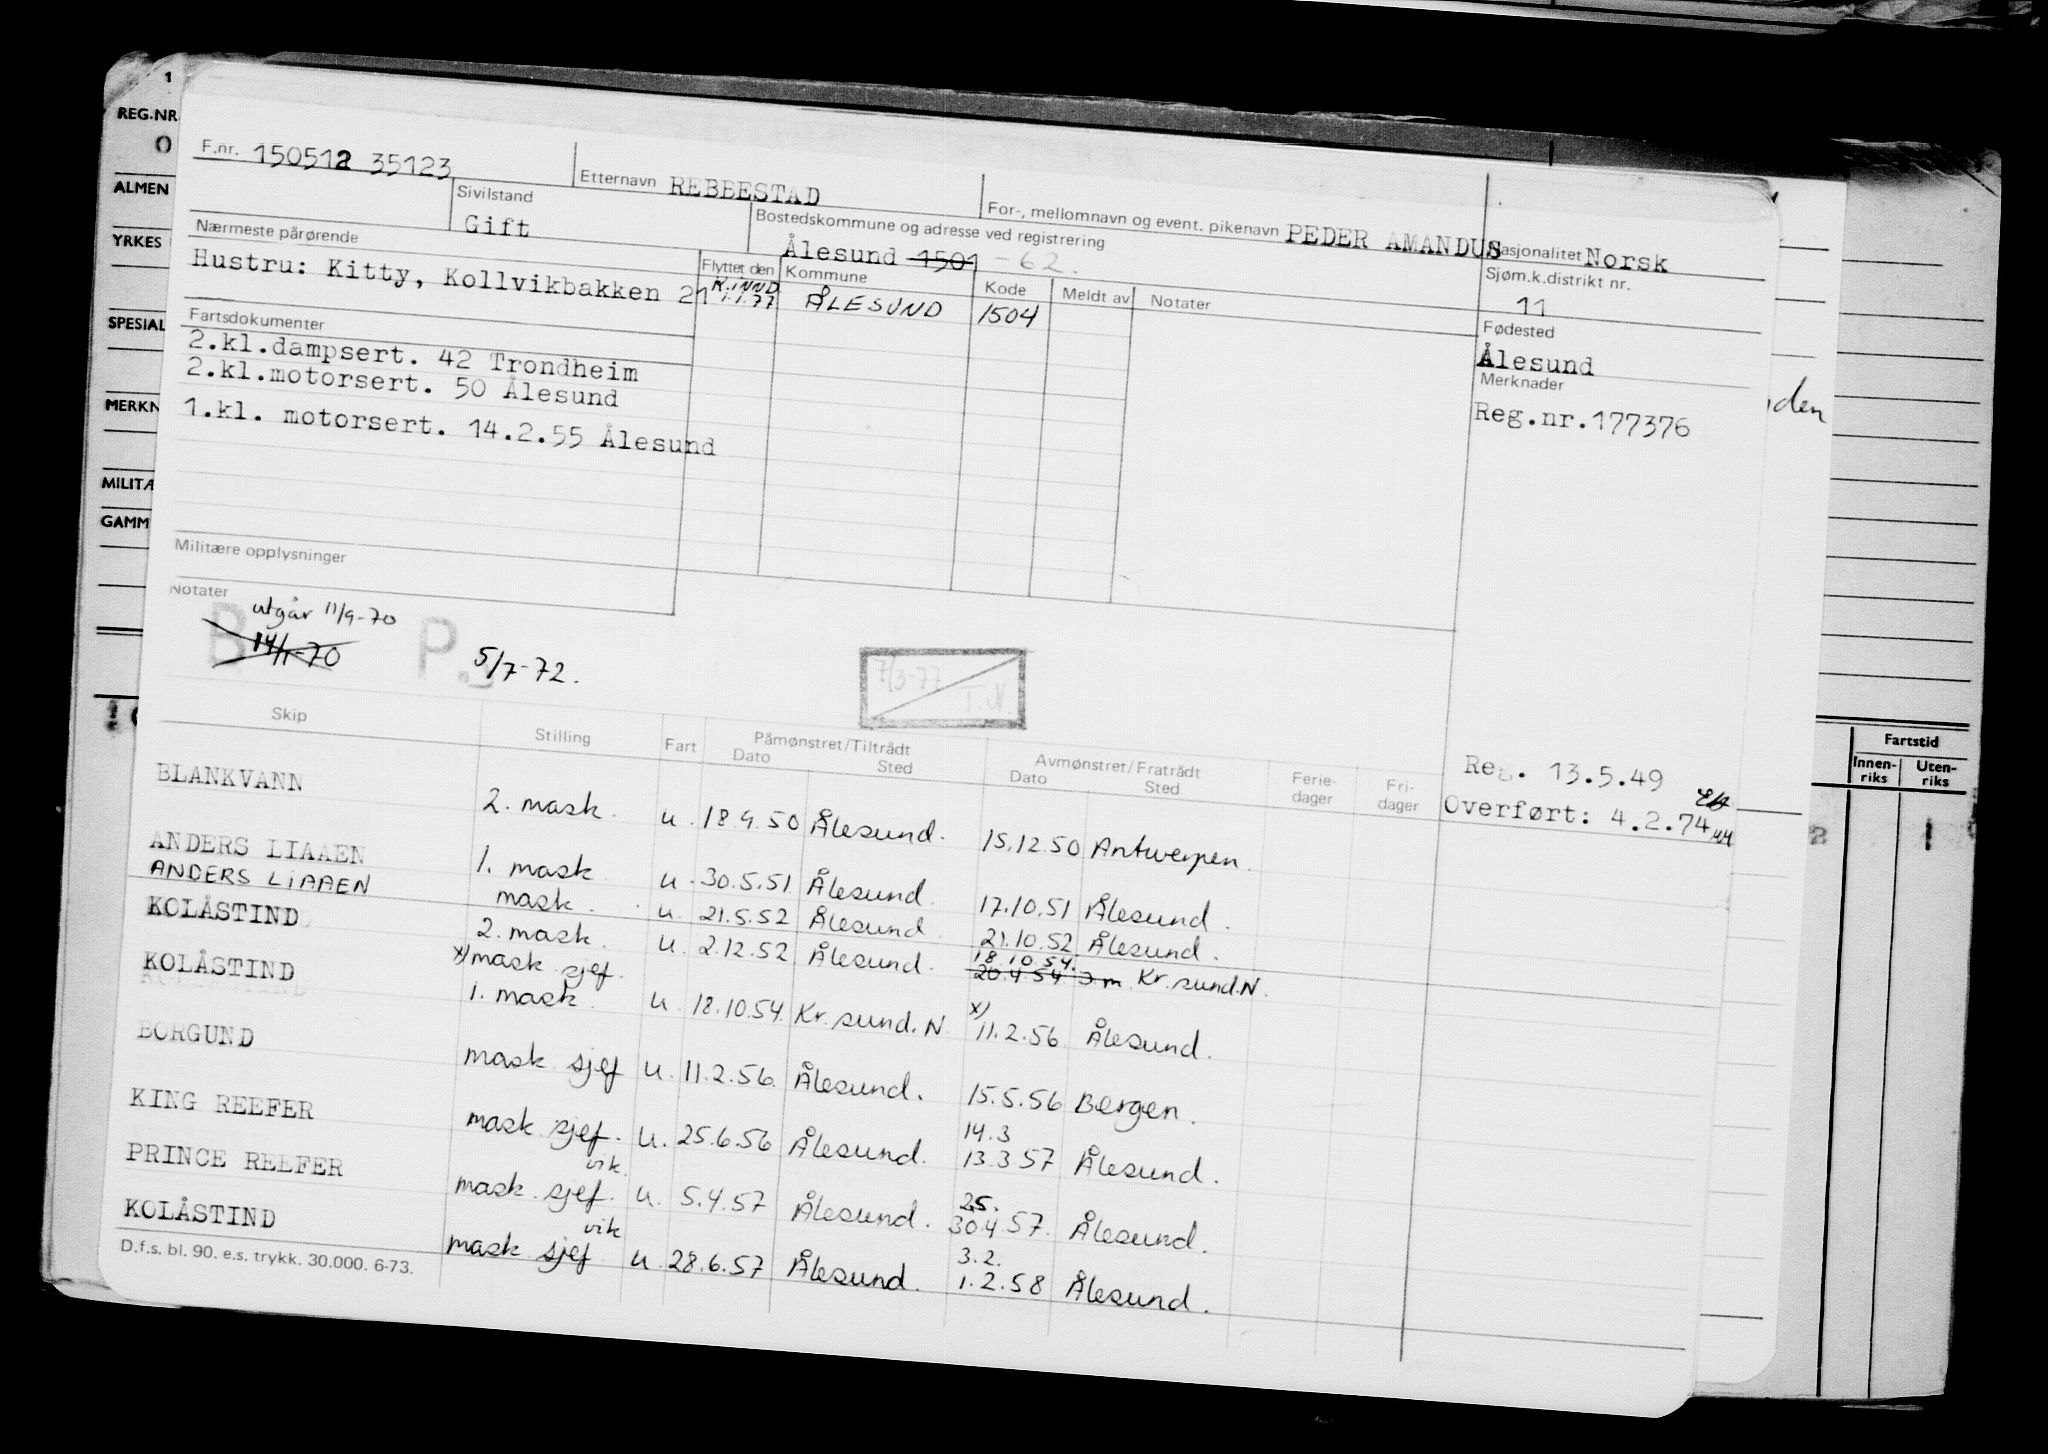 1
REG.NR.
0
ALMEN
YRKES
SPESIAL
MERKN
MILITÆ
GAMM
F.nr. 150512 35123
Etternavn REBBESTAD
For-, mellomnavn og event. pikenavn PEDER AMANDUS
Nasjonalitet Norsk
Sivilstand
Gift
Bostedskommune og adresse ved registrering
Ålesund 1501 -62.
Sjøm.k.distrikt nr.
11
Nærmeste pårørende
Hustru: Kitty, Kollvikbakken 21
Flyttet den Kommune Kode Meldt av Notater
K.INND 1.1.77 ÅLESUND 1504
Fødested
Ålesund
Fartsdokumenter
2.kl.dampsert. 42 Trondheim
2.kl.motorsert. 50 Ålesund
1.kl. motorsert. 14.2.55 Ålesund
Merknader
Reg.nr.177376
Militære opplysninger
Notater
utgår 11/9-70
B 14/1-70 P. 5/7-72.
7/3-77 T.N.
Skip Stilling Fart Påmønstret/Tiltrådt Dato Sted Avmønstret/Fratrådt Dato Sted Ferie-dager Fri-dager
Reg. 13.5.49
Overført: 4.2.74
BLANKVANN 2. mask. u. 18.9.50 Ålesund. 15.12.50 Antwerpen.
ANDERS LIAAEN 1. mask. u. 30.5.51 Ålesund. 17.10.51 Ålesund.
ANDERS LIAAEN mask. u. 21.5.52 Ålesund. 21.10.52 Ålesund.
KOLÅSTIND 2. mask. u. 2.12.52 Ålesund. 18.10.54. 20.4.54 Kr.sund.N.
x) mask sjef.
KOLÅSTIND 1. mask. u. 18.10.54 Kr.sund.N x) 11.2.56 Ålesund.
BORGUND mask sjef u. 11.2.56. Ålesund. 15.5.56 Bergen.
KING REEFER mask sjef. u. 25.6.56 Ålesund. 14.3 13.3.57 Ålesund.
PRINCE REEFER mask sjef. vik. u. 5.4.57 Ålesund. 25. 30.4.57. Ålesund.
KOLÅSTIND mask sjef vik u. 28.6.57 Ålesund. 3.2. 1.2.58 Ålesund.
D.f.s. bl. 90. e.s. trykk. 30.000. 6-73.
Fartstid
Innen-riks Uten-riks